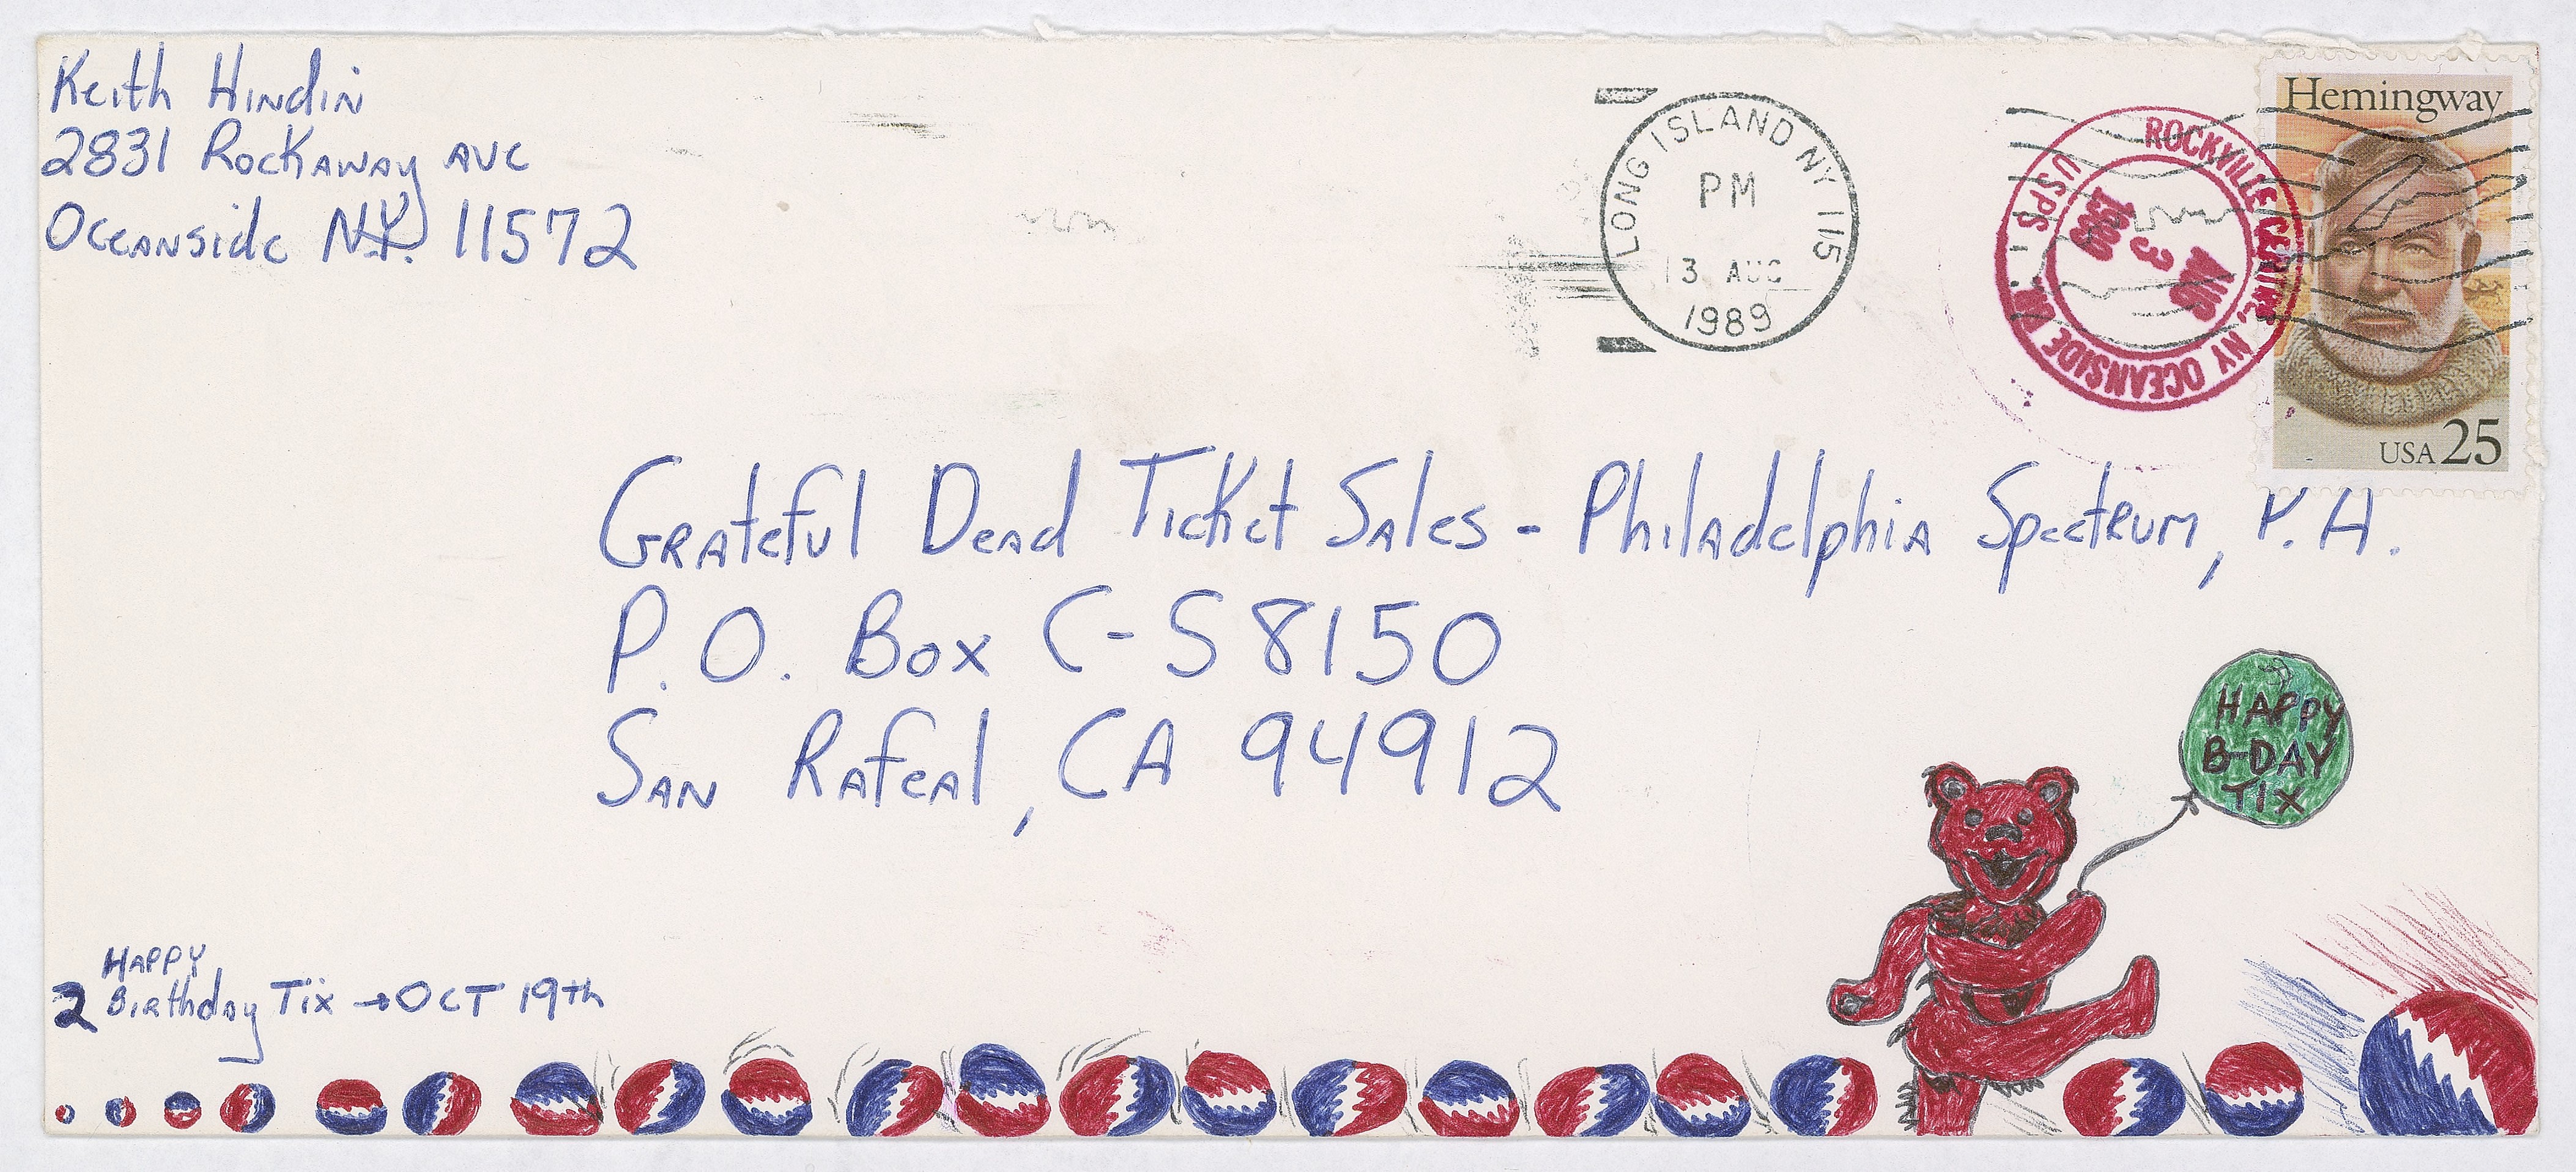 Keith Hindin
2831 Rockaway Ave
Oceanside N.Y. 11572
LONG ISLAND NY 115
PM
13 AUG
1989
ROCKVILLE CENTRE, NY OCEANSIDE
USPS
AUG
3
1989
Hemingway
USA 25
Grateful Dead Ticket Sales - Philadelphia Spectrum, P.A.
P.O. Box C-S8150
San Rafeal, CA 94912
HAPPY
B-DAY
TIX
Happy
2 Birthday Tix → OCT 19th